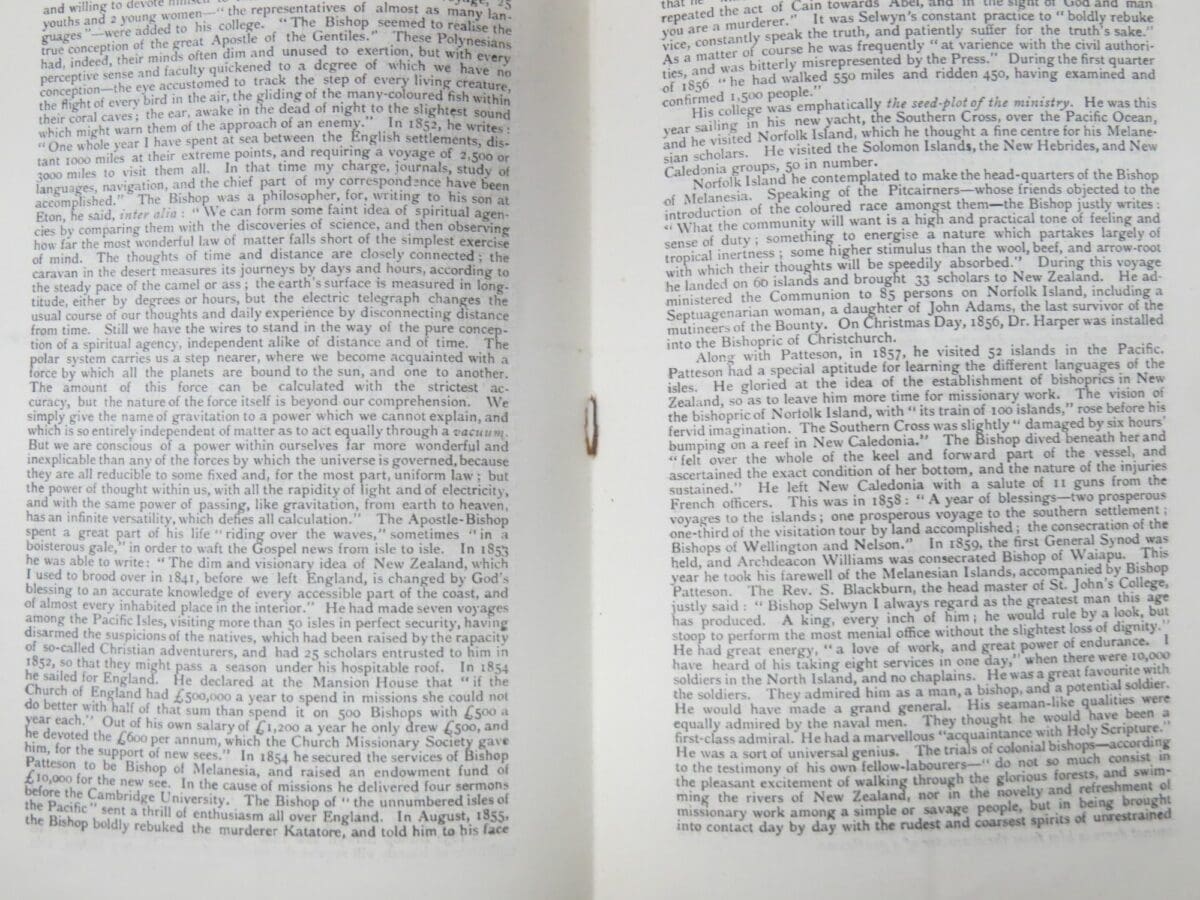 and willing to devote himself to
youths and 2 young women—"the representatives of almost as many lan-
guages"—were added to his college. "The Bishop seemed to realise the
true conception of the great Apostle of the Gentiles." These Polynesians
had, indeed, their minds often dim and unused to exertion, but with every
perceptive sense and faculty quickened to a degree of which we have no
conception—the eye accustomed to track the step of every living creature,
the flight of every bird in the air, the gliding of the many-coloured fish within
their coral caves; the ear, awake in the dead of night to the slightest sound
which might warn them of the approach of an enemy." In 1852, he writes:
"One whole year I have spent at sea between the English settlements, dis-
tant 1000 miles at their extreme points, and requiring a voyage of 2,500 or
3000 miles to visit them all. In that time my charge, journals, study of
languages, navigation, and the chief part of my correspondence have been
accomplished." The Bishop was a philosopher, for, writing to his son at
Eton, he said, inter alia: "We can form some faint idea of spiritual agen-
cies by comparing them with the discoveries of science, and then observing
how far the most wonderful law of matter falls short of the simplest exercise
of mind. The thoughts of time and distance are closely connected; the
caravan in the desert measures its journeys by days and hours, according to
the steady pace of the camel or ass; the earth's surface is measured in long-
titude, either by degrees or hours, but the electric telegraph changes the
usual course of our thoughts and daily experience by disconnecting distance
from time. Still we have the wires to stand in the way of the pure concep-
tion of a spiritual agency, independent alike of distance and of time. The
polar system carries us a step nearer, where we become acquainted with a
force by which all the planets are bound to the sun, and one to another.
The amount of this force can be calculated with the strictest ac-
curacy, but the nature of the force itself is beyond our comprehension. We
simply give the name of gravitation to a power which we cannot explain, and
which is so entirely independent of matter as to act equally through a vacuum.
But we are conscious of a power within ourselves far more wonderful and
inexplicable than any of the forces by which the universe is governed, because
they are all reducible to some fixed and, for the most part, uniform law; but
the power of thought within us, with all the rapidity of light and of electricity,
and with the same power of passing, like gravitation, from earth to heaven,
has an infinite versatility, which defies all calculation." The Apostle-Bishop
spent a great part of his life "riding over the waves," sometimes "in a
boisterous gale," in order to waft the Gospel news from isle to isle. In 1853
he was able to write: "The dim and visionary idea of New Zealand, which
I used to brood over in 1841, before we left England, is changed by God's
blessing to an accurate knowledge of every accessible part of the coast, and
of almost every inhabited place in the interior." He had made seven voyages
among the Pacific Isles, visiting more than 50 isles in perfect security, having
disarmed the suspicions of the natives, which had been raised by the rapacity
of so-called Christian adventurers, and had 25 scholars entrusted to him in
1852, so that they might pass a season under his hospitable roof. In 1854
he sailed for England. He declared at the Mansion House that "if the
Church of England had £500,000 a year to spend in missions she could not
do better with half of that sum than spend it on 500 Bishops with £500 a
year each." Out of his own salary of £1,200 a year he only drew £500, and
he devoted the £600 per annum, which the Church Missionary Society gave
him, for the support of new sees." In 1854 he secured the services of Bishop
Patteson to be Bishop of Melanesia, and raised an endowment fund of
£10,000 for the new see. In the cause of missions he delivered four sermons
before the Cambridge University. The Bishop of "the unnumbered isles of
the Pacific" sent a thrill of enthusiasm all over England. In August, 1855,
the Bishop boldly rebuked the murderer Katatore, and told him to his face
repeated the act of Cain towards Abel, and in the sight of God and man
you are a murderer." It was Selwyn's constant practice to "boldly rebuke
vice, constantly speak the truth, and patiently suffer for the truth's sake."
As a matter of course he was frequently "at varience with the civil authori-
ties, and was bitterly misrepresented by the Press." During the first quarter
of 1856 "he had walked 550 miles and ridden 450, having examined and
confirmed 1,500 people."
His college was emphatically the seed-plot of the ministry. He was this
year sailing in his new yacht, the Southern Cross, over the Pacific Ocean,
and he visited Norfolk Island, which he thought a fine centre for his Melane-
sian scholars. He visited the Solomon Islands, the New Hebrides, and New
Caledonia groups, 50 in number.
Norfolk Island he contemplated to make the head-quarters of the Bishop
of Melanesia. Speaking of the Pitcairners—whose friends objected to the
introduction of the coloured race amongst them—the Bishop justly writes:
"What the community will want is a high and practical tone of feeling and
sense of duty; something to energise a nature which partakes largely of
tropical inertness; some higher stimulus than the wool, beef, and arrow-root
with which their thoughts will be speedily absorbed." During this voyage
he landed on 60 islands and brought 33 scholars to New Zealand. He ad-
ministered the Communion to 85 persons on Norfolk Island, including a
Septuagenarian woman, a daughter of John Adams, the last survivor of the
mutineers of the Bounty. On Christmas Day, 1856, Dr. Harper was installed
into the Bishopric of Christchurch.
Along with Patteson, in 1857, he visited 52 islands in the Pacific.
Patteson had a special aptitude for learning the different languages of the
isles. He gloried at the idea of the establishment of bishoprics in New
Zealand, so as to leave him more time for missionary work. The vision of
the bishopric of Norfolk Island, with "its train of 100 islands," rose before his
fervid imagination. The Southern Cross was slightly "damaged by six hours'
bumping on a reef in New Caledonia." The Bishop dived beneath her and
"felt over the whole of the keel and forward part of the vessel, and
ascertained the exact condition of her bottom, and the nature of the injuries
sustained." He left New Caledonia with a salute of 11 guns from the
French officers. This was in 1858: "A year of blessings—two prosperous
voyages to the islands; one prosperous voyage to the southern settlement;
one-third of the visitation tour by land accomplished; the consecration of the
Bishops of Wellington and Nelson." In 1859, the first General Synod was
held, and Archdeacon Williams was consecrated Bishop of Waiapu. This
year he took his farewell of the Melanesian Islands, accompanied by Bishop
Patteson. The Rev. S. Blackburn, the head master of St. John's College,
justly said: "Bishop Selwyn I always regard as the greatest man this age
has produced. A king, every inch of him; he would rule by a look, but
stoop to perform the most menial office without the slightest loss of dignity."
He had great energy, "a love of work, and great power of endurance. I
have heard of his taking eight services in one day," when there were 10,000
soldiers in the North Island, and no chaplains. He was a great favourite with
the soldiers. They admired him as a man, a bishop, and a potential soldier.
He would have made a grand general. His seaman-like qualities were
equally admired by the naval men. They thought he would have been a
first-class admiral. He had a marvellous "acquaintance with Holy Scripture."
He was a sort of universal genius. The trials of colonial bishops—according
to the testimony of his own fellow-labourers—"do not so much consist in
the pleasant excitement of walking through the glorious forests, and swim-
ming the rivers of New Zealand, nor in the novelty and refreshment of
missionary work among a simple or savage people, but in being brought
into contact day by day with the rudest and coarsest spirits of unrestrained